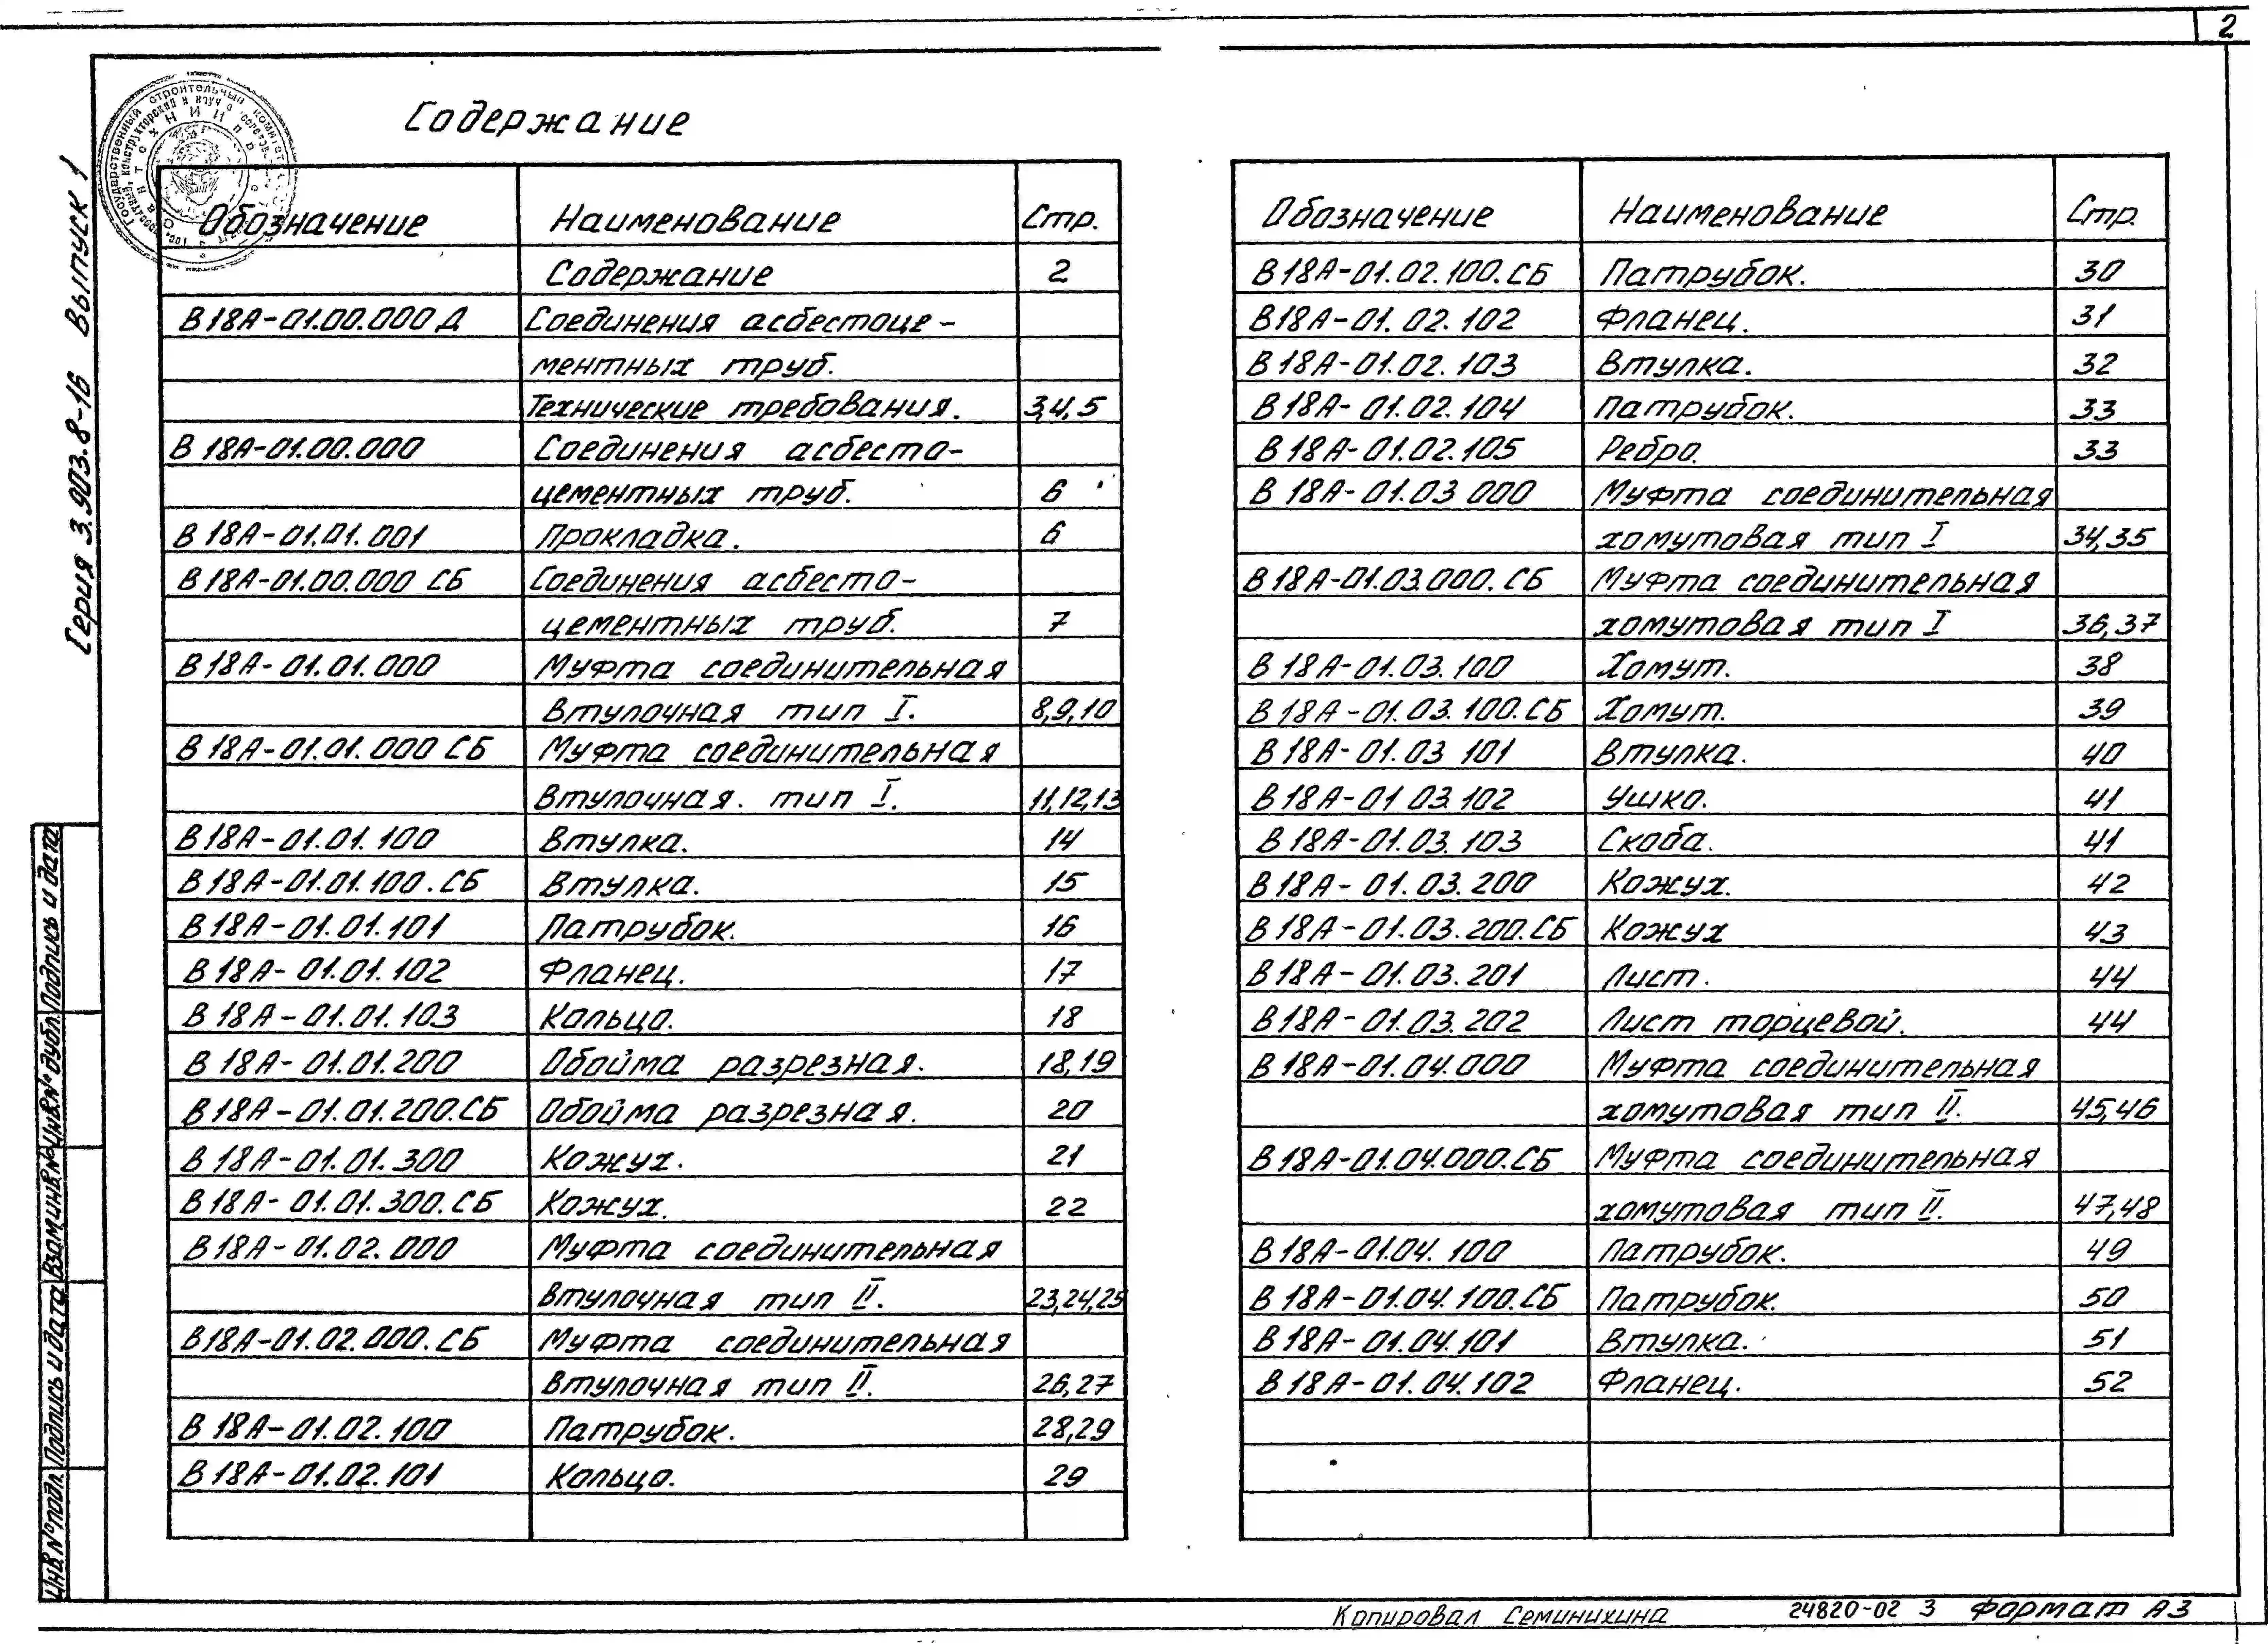 2
Содержание
Серия 3.903.8-16 Выпуск 1
Обозначение Наименование Стр.
Содержание 2
В18А-01.00.000 Д Соединения асбестоце-
ментных труб.
Технические требования. 3,4,5
В 18А-01.00.000 Соединения асбесто-
цементных труб. 6
В 18А-01.01.001 Прокладка. 6
В 18А-01.00.000 СБ Соединения асбесто-
цементных труб. 7
В 18А-01.01.000 Муфта соединительная
втулочная тип I. 8,9,10
В 18А-01.01.000 СБ Муфта соединительная
втулочная. тип I. 11,12,13
В 18А-01.01.100 Втулка. 14
В 18А-01.01.100.СБ Втулка. 15
В 18А-01.01.101 Патрубок. 16
В 18А-01.01.102 Фланец. 17
В 18А-01.01.103 Кольцо. 18
В 18А-01.01.200 Обойма разрезная. 18,19
В 18А-01.01.200.СБ Обойма разрезная. 20
В 18А-01.01.300 Кожух. 21
В 18А-01.01.300.СБ Кожух. 22
В 18А-01.02.000 Муфта соединительная
втулочная тип II. 23,24,25
В18А-01.02.000.СБ Муфта соединительная
втулочная тип II. 26,27
В 18А-01.02.100 Патрубок. 28,29
В 18А-01.02.101 Кольцо. 29
Обозначение Наименование Стр.
В 18А-01.02.100.СБ Патрубок. 30
В18А-01.02.102 Фланец. 31
В 18А-01.02.103 Втулка. 32
В 18А-01.02.104 Патрубок. 33
В 18А-01.02.105 Ребро. 33
В 18А-01.03 000 Муфта соединительная
хомутовая тип I 34,35
В 18А-01.03.000.СБ Муфта соединительная
хомутовая тип I 36,37
В 18А-01.03.100 Хомут. 38
В 18А-01.03.100.СБ Хомут. 39
В 18А-01.03 101 Втулка. 40
В 18А-01 03.102 Ушко. 41
В 18А-01.03.103 Скоба. 41
В 18А-01.03.200 Кожух. 42
В 18А-01.03.200.СБ Кожух 43
В 18А-01.03.201 Лист. 44
В 18А-01.03.202 Лист торцевой. 44
В 18А-01.04.000 Муфта соединительная
хомутовая тип II. 45,46
В 18А-01.04.000.СБ Муфта соединительная
хомутовая тип II. 47,48
В 18А-01.04.100 Патрубок. 49
В 18А-01.04.100.СБ Патрубок. 50
В 18А-01.04.101 Втулка. 51
В 18А-01.04.102 Фланец. 52
Инв.№подл. Подпись и дата Взам.инв.№ Инв.№дубл. Подпись и дата
Копировал Семинихина 24820-02 3 Формат А3